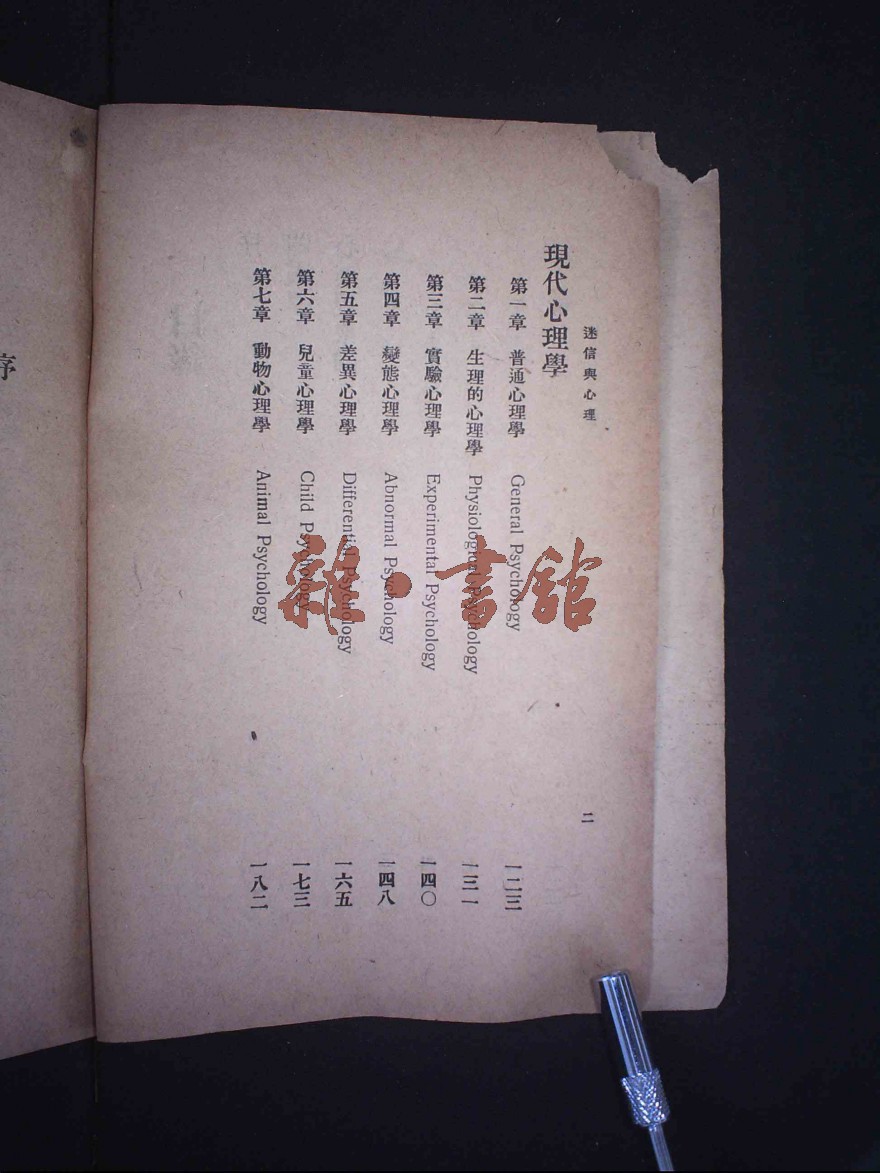 迷信與心理
二
現代心理學
第一章 普通心理學 General Psychology 一二三
第二章 生理的心理學 Physiological Psychology 一三一
第三章 實驗心理學 Experimental Psychology 一四〇
第四章 變態心理學 Abnormal Psychology 一四八
第五章 差異心理學 Differential Psychology 一六五
第六章 兒童心理學 Child Psychology 一七三
第七章 動物心理學 Animal Psychology 一八二
序
雜·書館